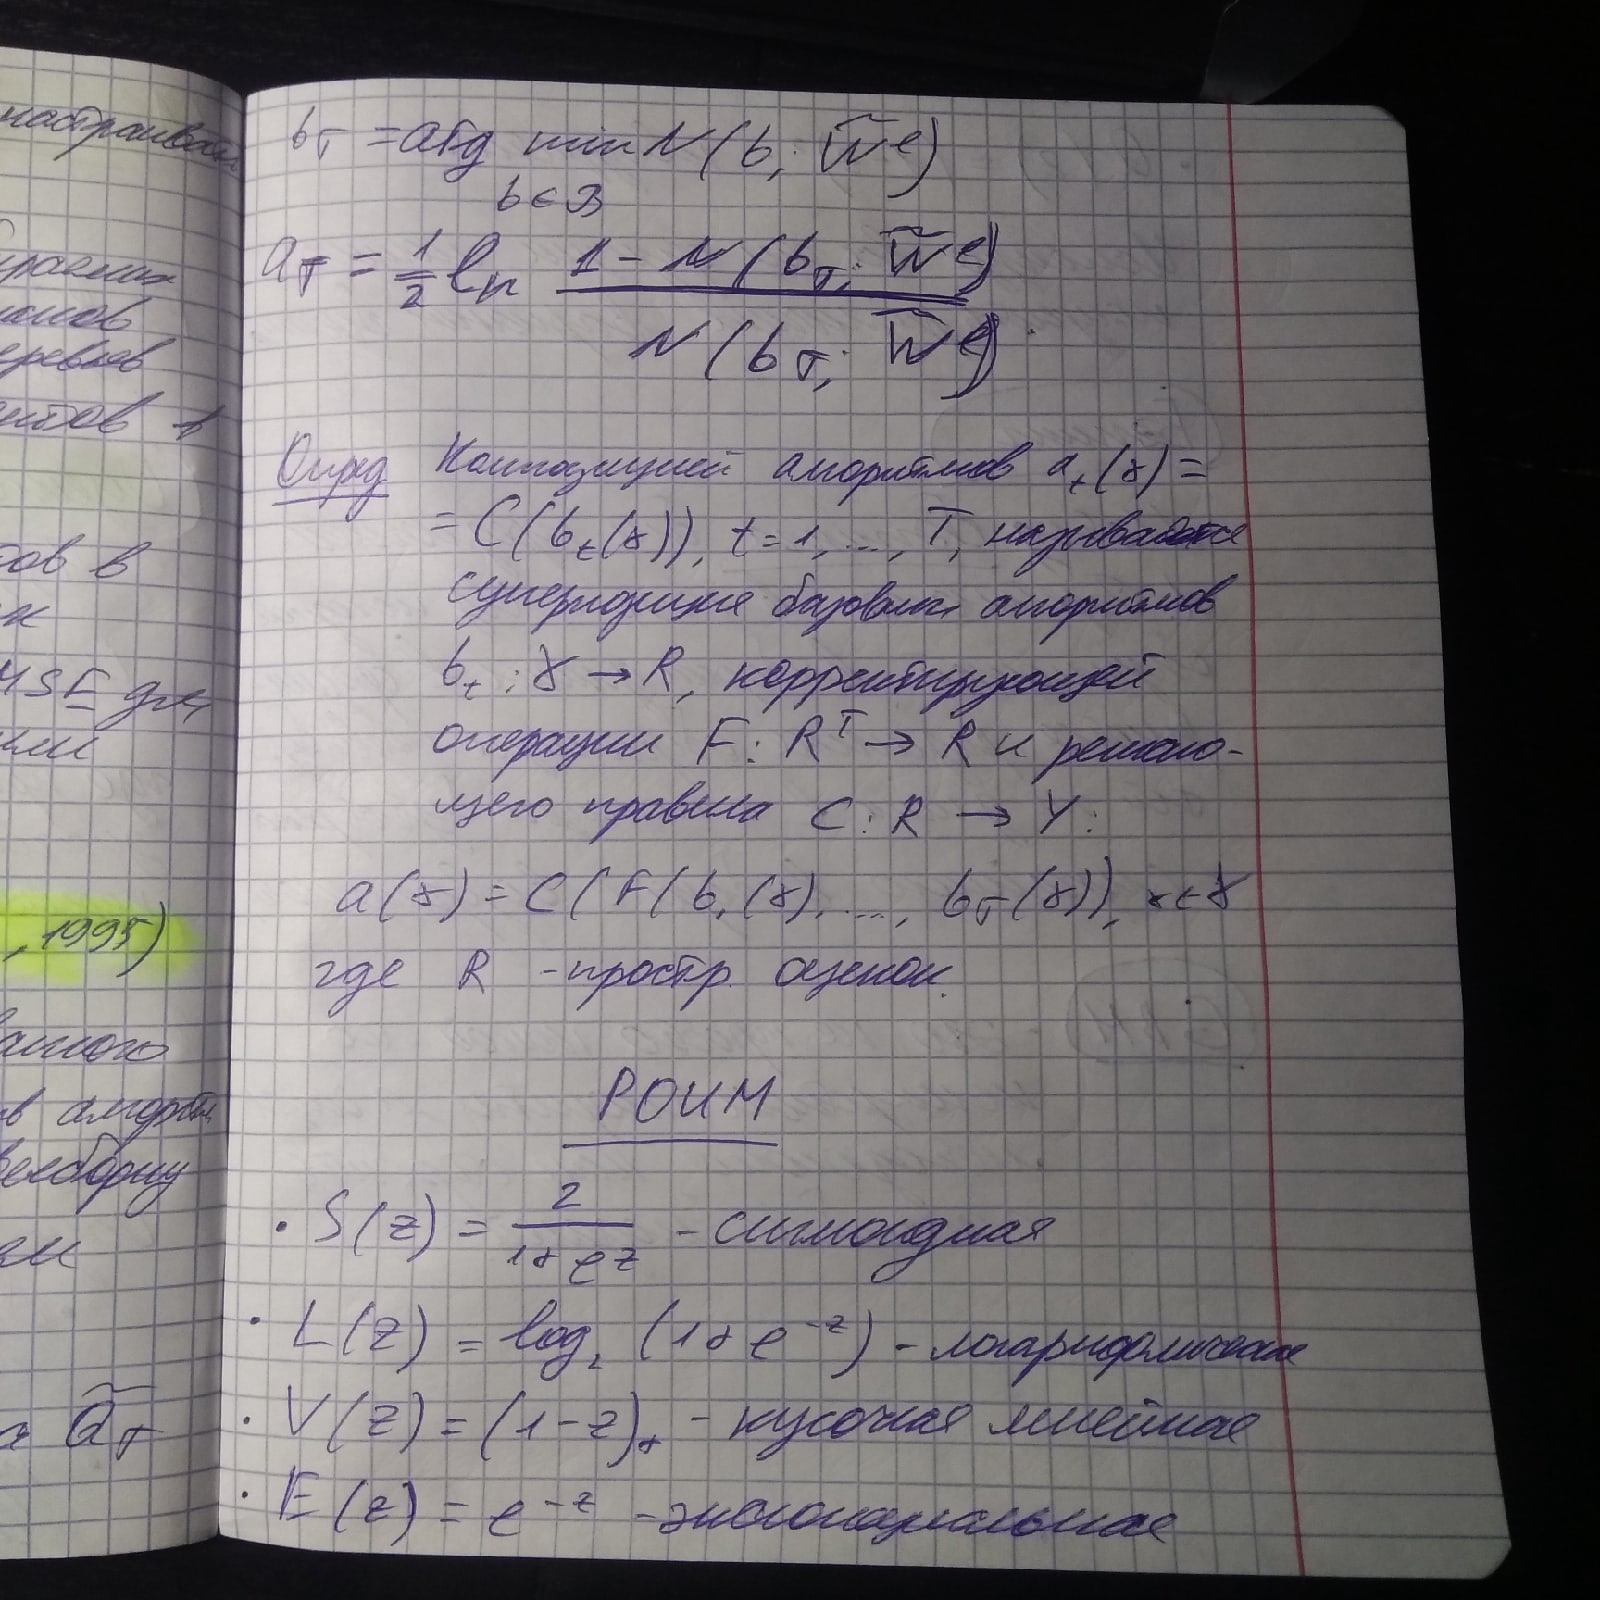 настраивать
аниов
еревьев
ентов +
тов в
к
MSE для
ыми
, 1995)
анного
в алгоритм
выборку
ми
ã_T
b_T = arg min N(b; W̃^ℓ)
b∈B
a_T = 1/2 ln (1 - N(b_T; W̃^ℓ)) / N(b_T; W̃^ℓ)
Опред Композицией алгоритмов a_t(x) =
= C(b_t(x)), t = 1, ..., T, называется
суперпозиция базовых алгоритмов
b_t : X → R, корректирующей
операции F: R^T → R и решаю-
щего правила C: R → Y:
a(x) = C(F(b_1(x), ..., b_T(x)), x∈X
где R - простр оценок.
РОИМ
· S(z) = 2/(1+e^z) - сигмоидная
· L(z) = log_2 (1+e^{-z}) - логарифмическая
· V(z) = (1-z)_+ - кусочная линейная
· E(z) = e^{-z} - экспонециальная